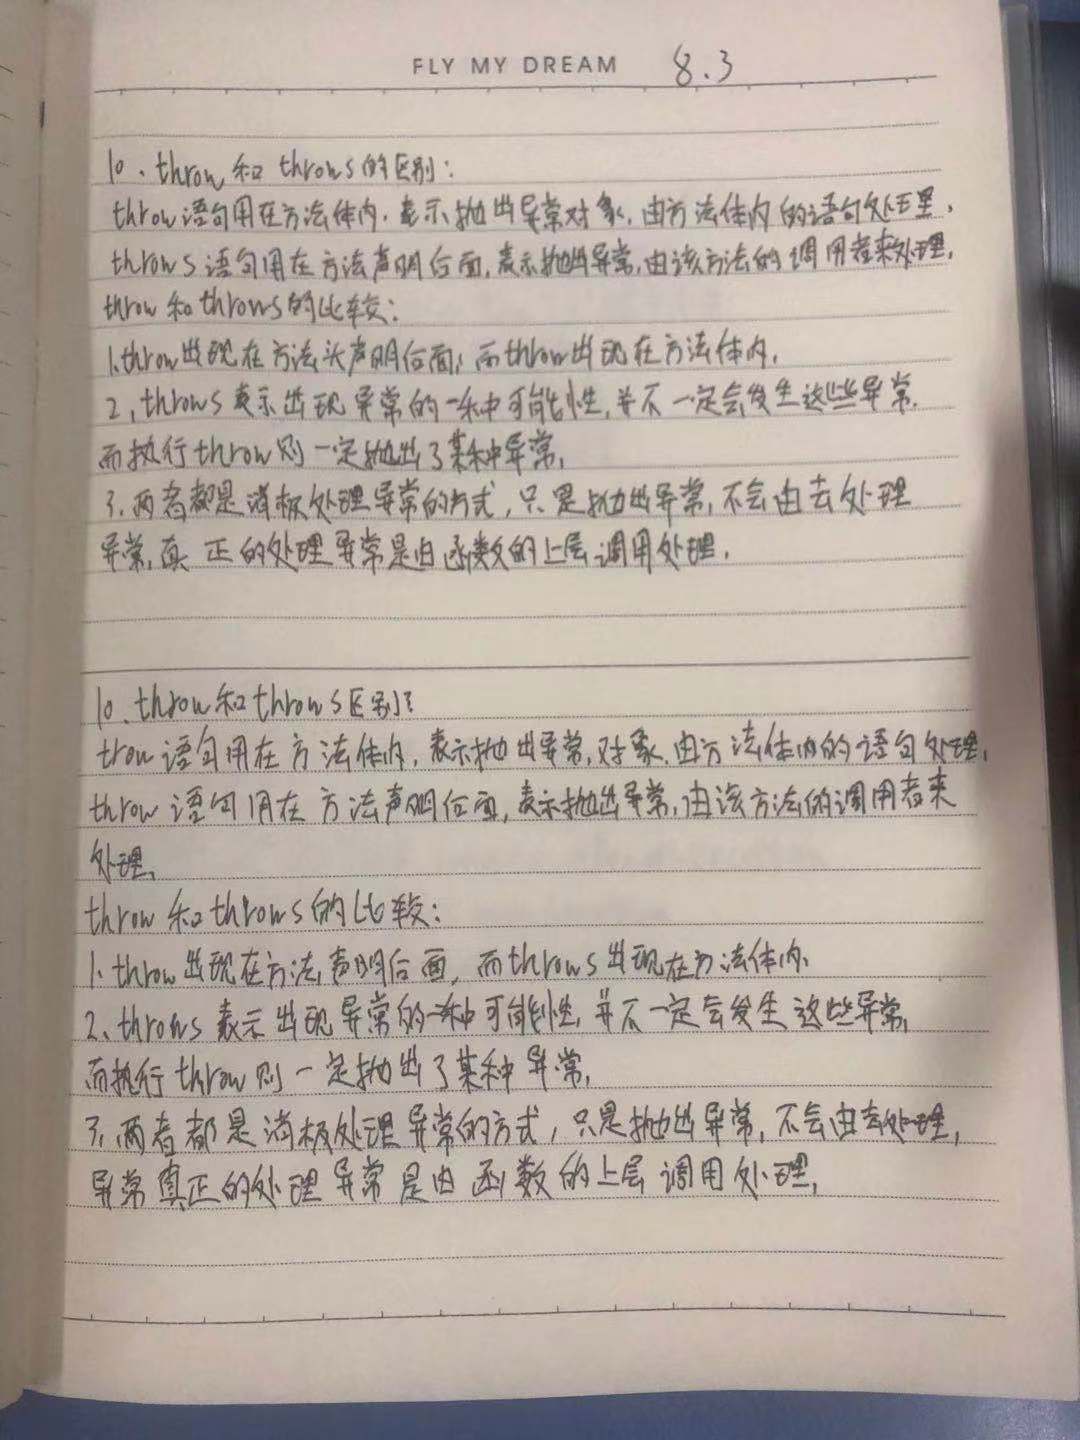 FLY MY DREAM 8.3
10、throw和throws的区别:
throw语句用在方法体内，表示抛出异常对象，由方法体内的语句处理，
throws语句用在方法声明后面，表示抛出异常，由该方法的调用者来处理，
throw和throws的比较:
1、throw出现在方法头声明后面，而throw出现在方法体内，
2，throws表示出现异常的一种可能性，并不一定会发生这些异常，
而执行throw则一定抛出了某种异常，
3、两者都是消极处理异常的方式，只是抛出异常，不会由去处理
异常，真正的处理异常是由函数的上层调用处理，
10、throw和throws区别:
trow语句用在方法体内，表示抛出异常，对象，由方法体内的语句处理，
throw语句用在方法声明后面，表示抛出异常，由该方法的调用者来
处理，
throw和throws的比较:
1、throw出现在方法声明后面，而throws出现在方法体内、
2、throws表示出现异常的一种可能性，并不一定会发生这些异常，
而执行throw则一定抛出了某种异常，
3、两者都是消极处理异常的方式，只是抛出异常，不会由去处理，
异常真正的处理异常是由函数的上层调用处理，